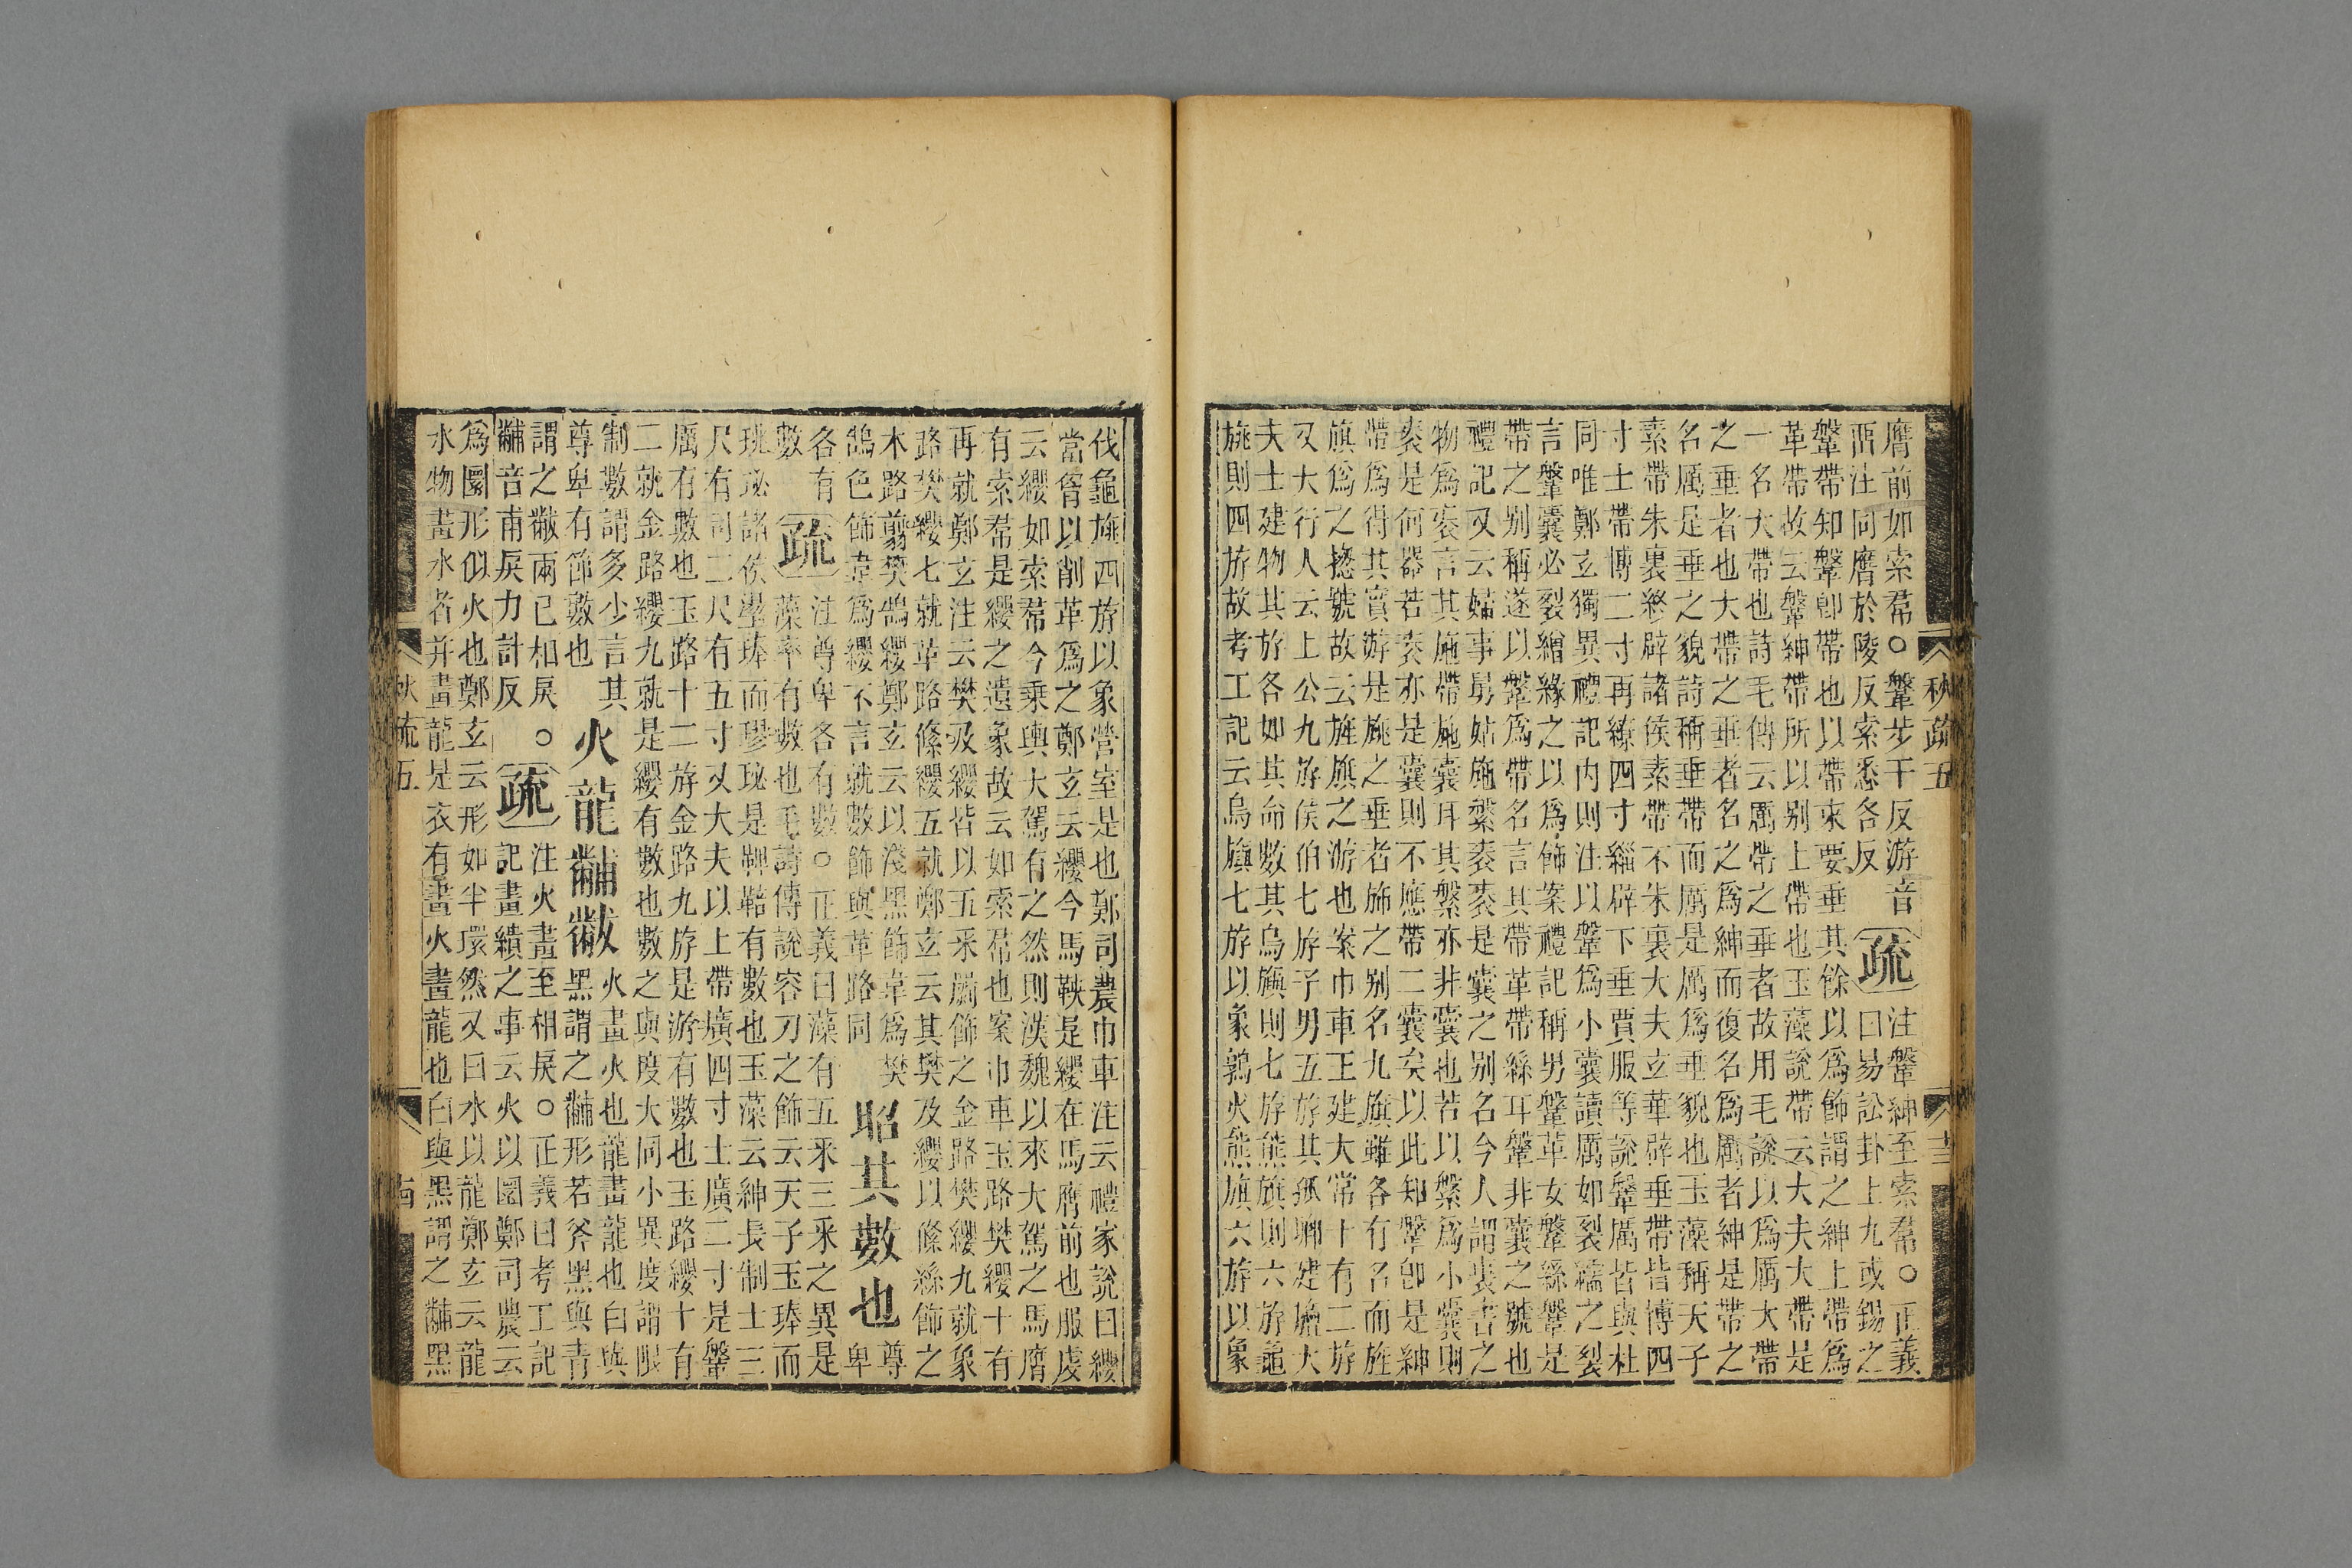 膺前如索帬○鞶步干反游音
疏
注鞶紳至索帬○正義
㽷注同膺於陵反索悉各反
曰易訟卦上九或錫之
鞶帶知鞶卽帶也以帶束要垂其餘以爲飾謂之紳上帶爲
革帶故云鞶紳帶所以别上帶也玉藻說帶云大夫大帶是
一名大帶也詩毛傳云厲帶之垂者故用毛說以爲厲大帶
之垂者也大帶之垂者名之爲紳而復名爲厲者紳是帶之
名厲是垂之貌詩稱垂帶而厲是厲爲垂貌也玉藻稱天子
素帶朱裏終辟諸侯素帶不朱裏大夫立華辟垂帶皆博四
寸士帶博二寸再繚四寸緇辟下垂賈服等說鞶厲皆與杜
同唯鄭玄獨異禮記内則注以鞶爲小囊讀厲如裂繻之裂
言鞶囊必裂繒緣之以爲飾案禮記稱男鞶革女鞶絲鞶是
帶之别稱遂以鞶爲帶名言其帶革帶絲耳鞶非囊之號也
禮記又云婦事舅姑施縏袠袠是囊之别名今人謂裹書之
物爲袠言其施帶施囊耳其縏亦非囊也若以縏爲小囊則
袠是何器若袠亦是囊則不應帶二囊矣以此知鞶卽是紳
帶爲得其實游是旒之垂者旆之别名九旗雖各有名而旌
旗爲之揔號故云旌旗之游也案巾車王建大常十有二斿
又大行人云上公九斿侯伯七斿子男五斿其孤卿建旜大
夫士建物其斿各如其命數其鳥旟則七斿熊旗則六斿龜
旐則四斿故考工記云鳥旟七斿以象鶉火熊旗六斿以象
秋疏五
十三
伐龜旐四斿以象營室是也鄭司農巾車注云禮家說曰纓
當胷以削革爲之鄭玄云纓今馬鞅是纓在馬膺前也服虔
云纓如索帬今乗輿大駕有之然則漢魏以來大駕之馬膺
有索帬是纓之遺象故云如索帬也案巾車玉路樊纓十有
再就鄭玄注云樊及纓皆以五采罽飾之金路樊纓九就象
路樊纓七就革路絛纓五就鄭玄云其樊及纓以絛絲飾之
木路翦樊鵠纓鄭玄云以淺黑飾韋爲樊
鵠色飾韋爲纓不言就數飾與革路同
昭其數也
尊卑
各有
數
疏
注尊卑各有數○正義曰藻有五采三采之異是
藻率有數也毛詩傳說容刀之飾云天子玉琫而
珧珌諸侯璗琫而璆珌是鞞鞛有數也玉藻云紳長制士三
尺有司二尺有五寸又大夫以上帶廣四寸士廣二寸是鞶
厲有數也玉路十二斿金路九斿是游有數也玉路纓十有
二就金路纓九就是纓有數也數之與度大同小異度謂限
制數謂多少言其
尊卑有節數也
火龍黼黻
火畫火也龍畫龍也白與
黑謂之黼形若斧黑與靑
謂之黻兩已相戾○
黼音甫戾力計反
疏
注火畫至相戾○正義曰考工記
記畫繢之事云火以圜鄭司農云
爲圜形似火也鄭玄云形如半環然又曰水以龍鄭玄云龍
水物畫水者幷畫龍是衣有畫火畫龍也白與黑謂之黼黑
秋疏五